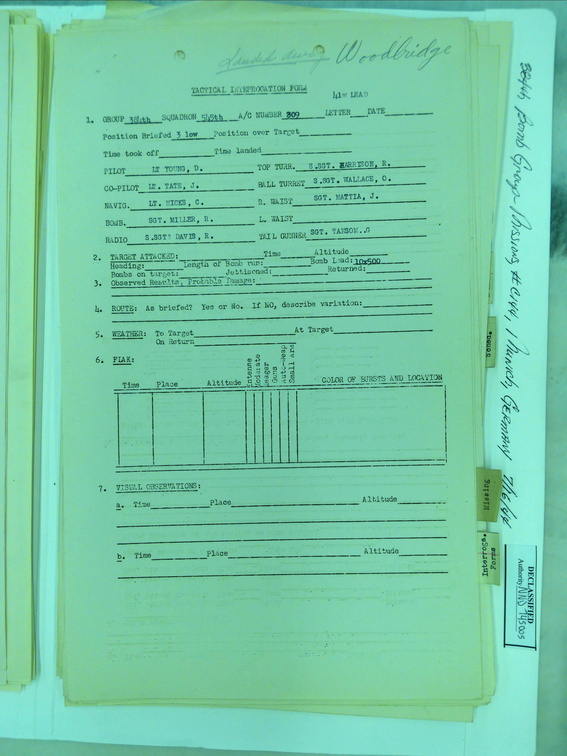 Landed away Woodbridge
TACTICAL INTERROGATION FORM
41st LEAD
1. GROUP 384th SQUADRON 545th A/C NUMBER 809 LETTER DATE
Position Briefed 3 low Position over Target
Time took off Time landed
PILOT LT YOUNG, D. TOP TURR. S.SGT. HARRISON, R.
CO-PILOT LT. TATE, J. BALL TURRET S.SGT. WALLACE, O.
NAVIG. LT. HICKS, C. R. WAIST SGT. MATTIA, J.
BOMB. SGT. MILLER, R. L. WAIST
RADIO S.SGT? DAVIS, R. TAIL GUNNER SGT. TANSOM..G
2. TARGET ATTACKED: Time Altitude
Heading: Length of Bomb run: Bomb Load: 10x500
Bombs on target: Jettisoned: Returned:
3. Observed Results, Probable Damage:
4. ROUTE: As briefed? Yes or No. If NO, describe variation:
5. WEATHER: To Target At Target
On Return
6. FLAK:
Time Place Altitude Intense Moderate Meager Guns Auto-Weap Small Arm COLOR OF BURSTS AND LOCATION
7. VISUAL OBSERVATIONS:
a. Time Place Altitude
b. Time Place Altitude
384th Bomb Group - Missing Munich, Germany
Sched.
Missing
Interroga.
Forms
DECLASSIFIED
Authority NND 745005